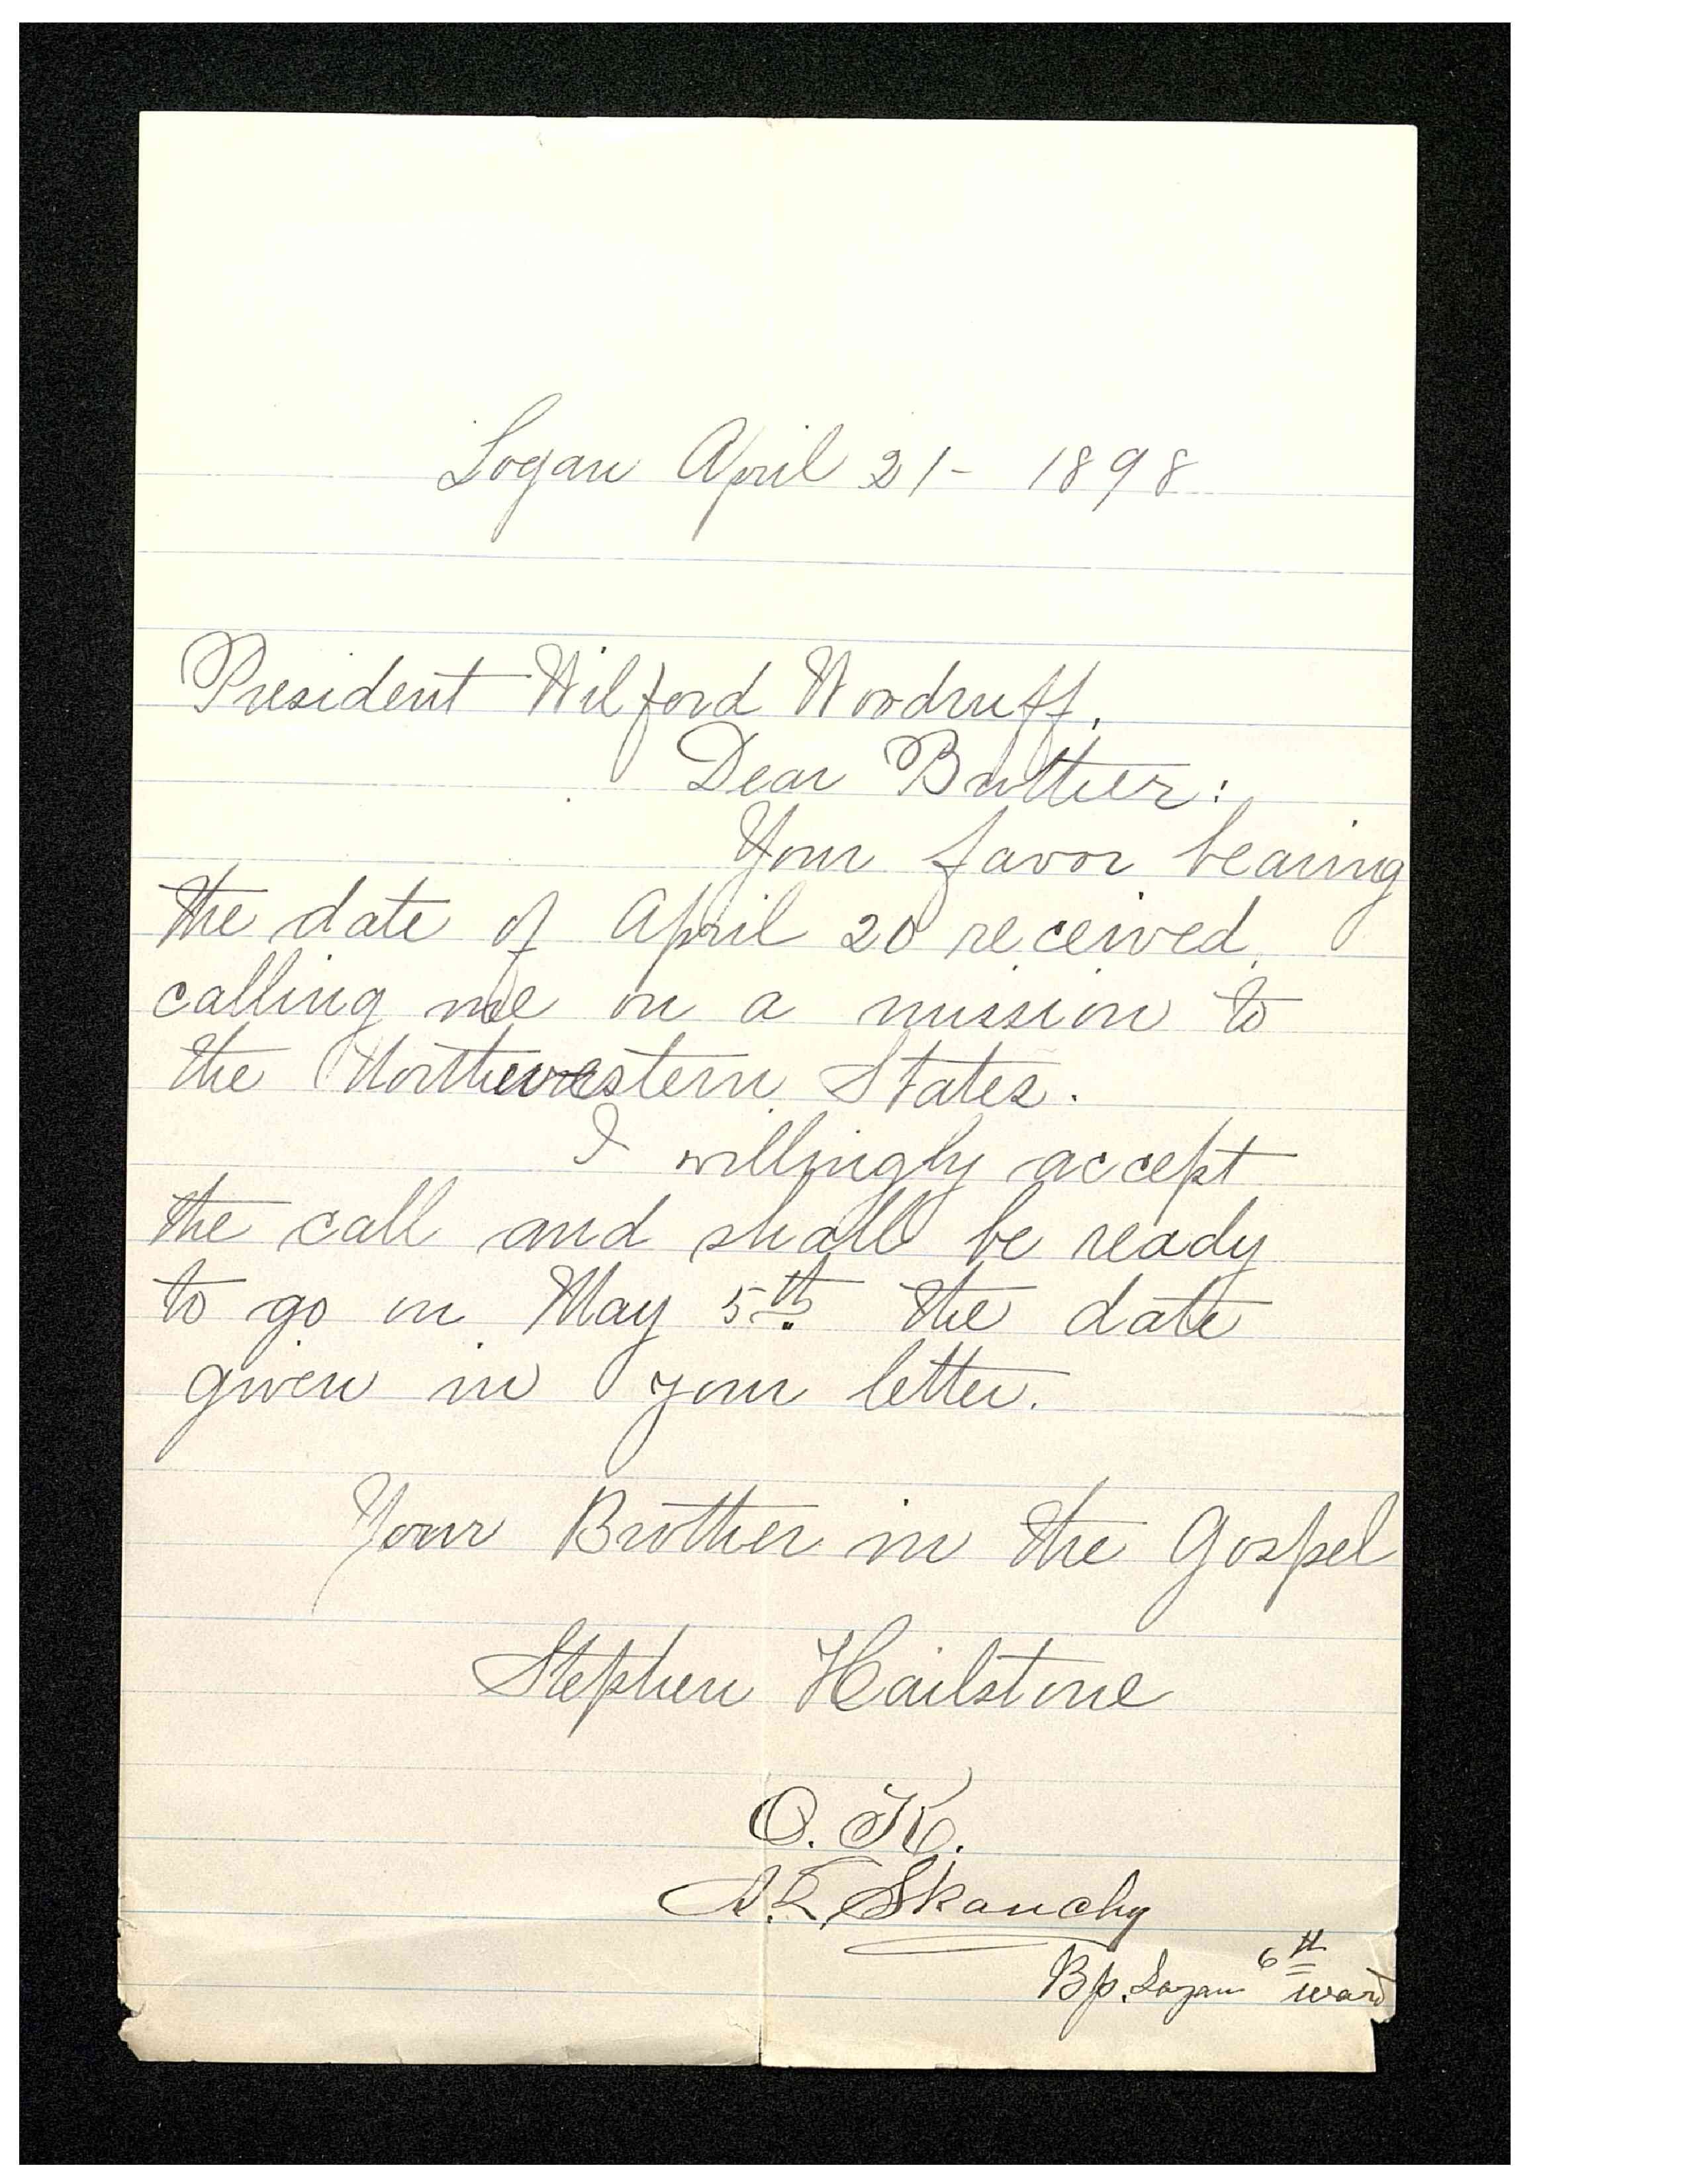 Logan April 21- 1898
President Wilford Woodruff.
Dear Brother:
Your favor bearing
the date of April 20 received,
calling me on a mission to
the Northwestern States.
I willingly accept
the call and shall be ready
to go on May 5th the date
given in your letter.
Your Brother in the Gospel
Stephen Hailstone
O. K.
A. L. Skanchy
Bp. Logan 6th ward